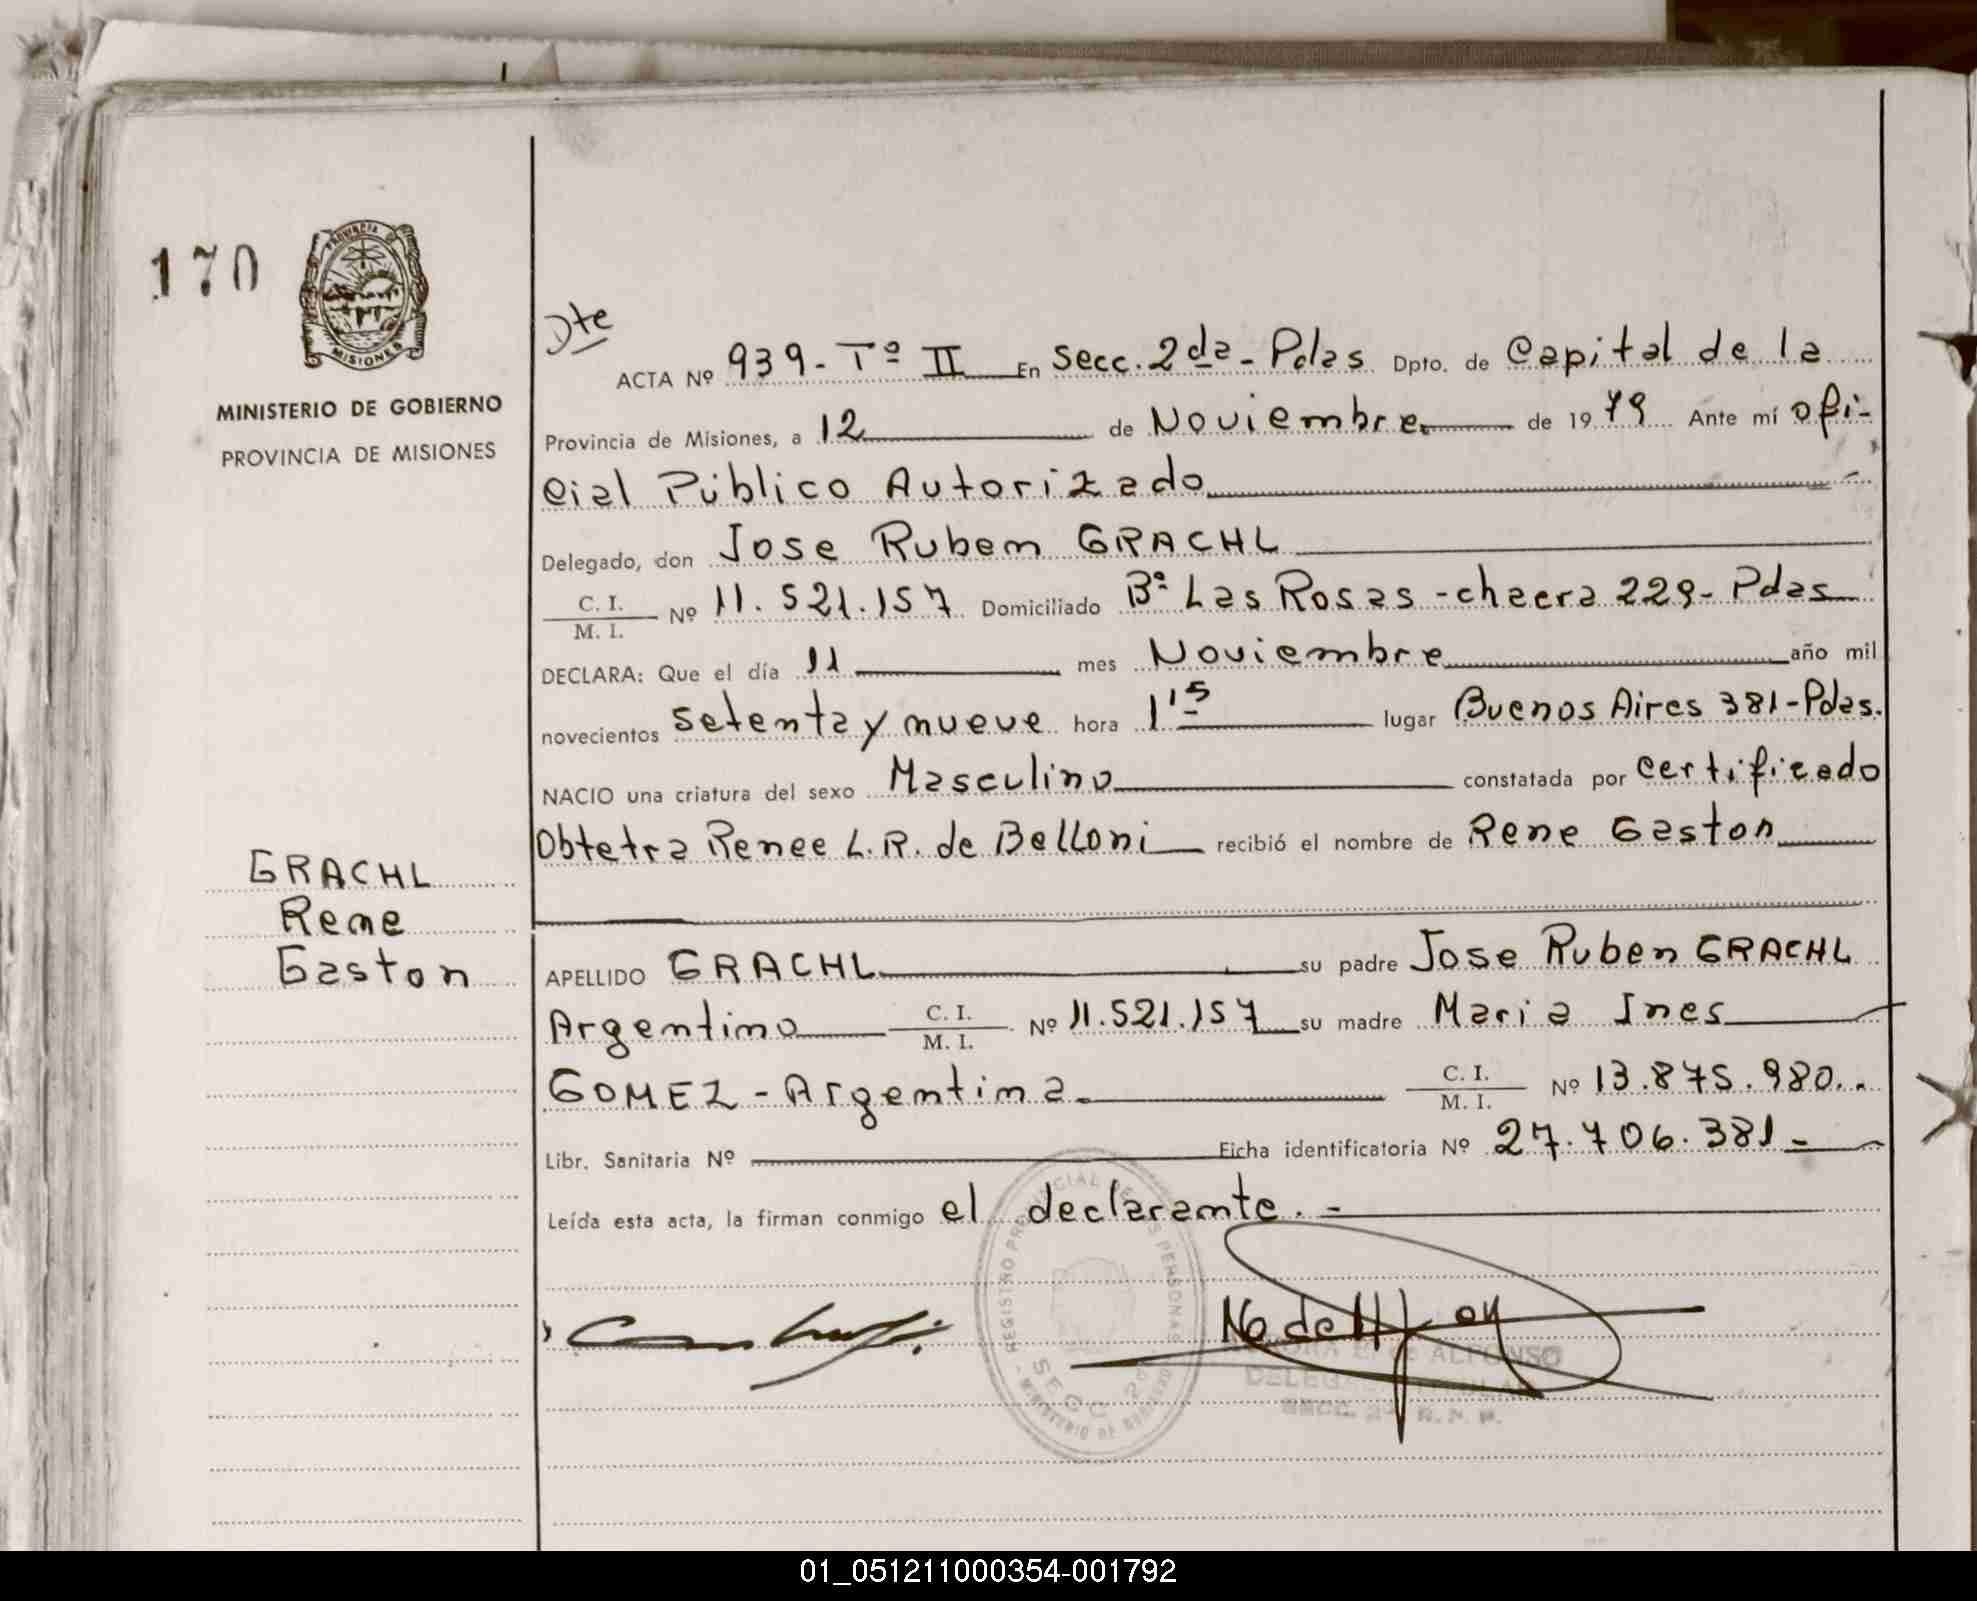 170
PROVINCIA DE
MISIONES
MINISTERIO DE GOBIERNO
PROVINCIA DE MISIONES
Dte
ACTA Nº 939 - Tº II En Secc. 2da - Pdas Dpto. de Capital de la
Provincia de Misiones, a 12 de Noviembre de 1979 Ante mí ofi-
cial Público Autorizado
Delegado, don Jose Ruben GRACHL
C. I.
M. I. Nº 11.521.157 Domiciliado Bº Las Rosas - chacra 229 - Pdas
DECLARA: Que el día 11 mes Noviembre año mil
novecientos setenta y nueve hora 1 15 lugar Buenos Aires 381 - Pdas.
NACIO una criatura del sexo Masculino constatada por certificado
Obtetra Renee L. R. de Belloni recibió el nombre de Rene Gaston
GRACHL
Rene
Gaston
APELLIDO GRACHL su padre Jose Ruben GRACHL
Argentino C. I.
M. I. Nº 11.521.157 su madre Maria Ines
GOMEZ - Argentina. C. I.
M. I. Nº 13.875.980..
Libr. Sanitaria Nº Ficha identificatoria Nº 27.706.381 -
Leída esta acta, la firman conmigo el declarante. -
REGISTRO PROVINCIAL DE LAS PERSONAS
SECC. 2a
MINISTERIO DE GOBIERNO
de ALFONSO
SECC. 2a
01_051211000354-001792